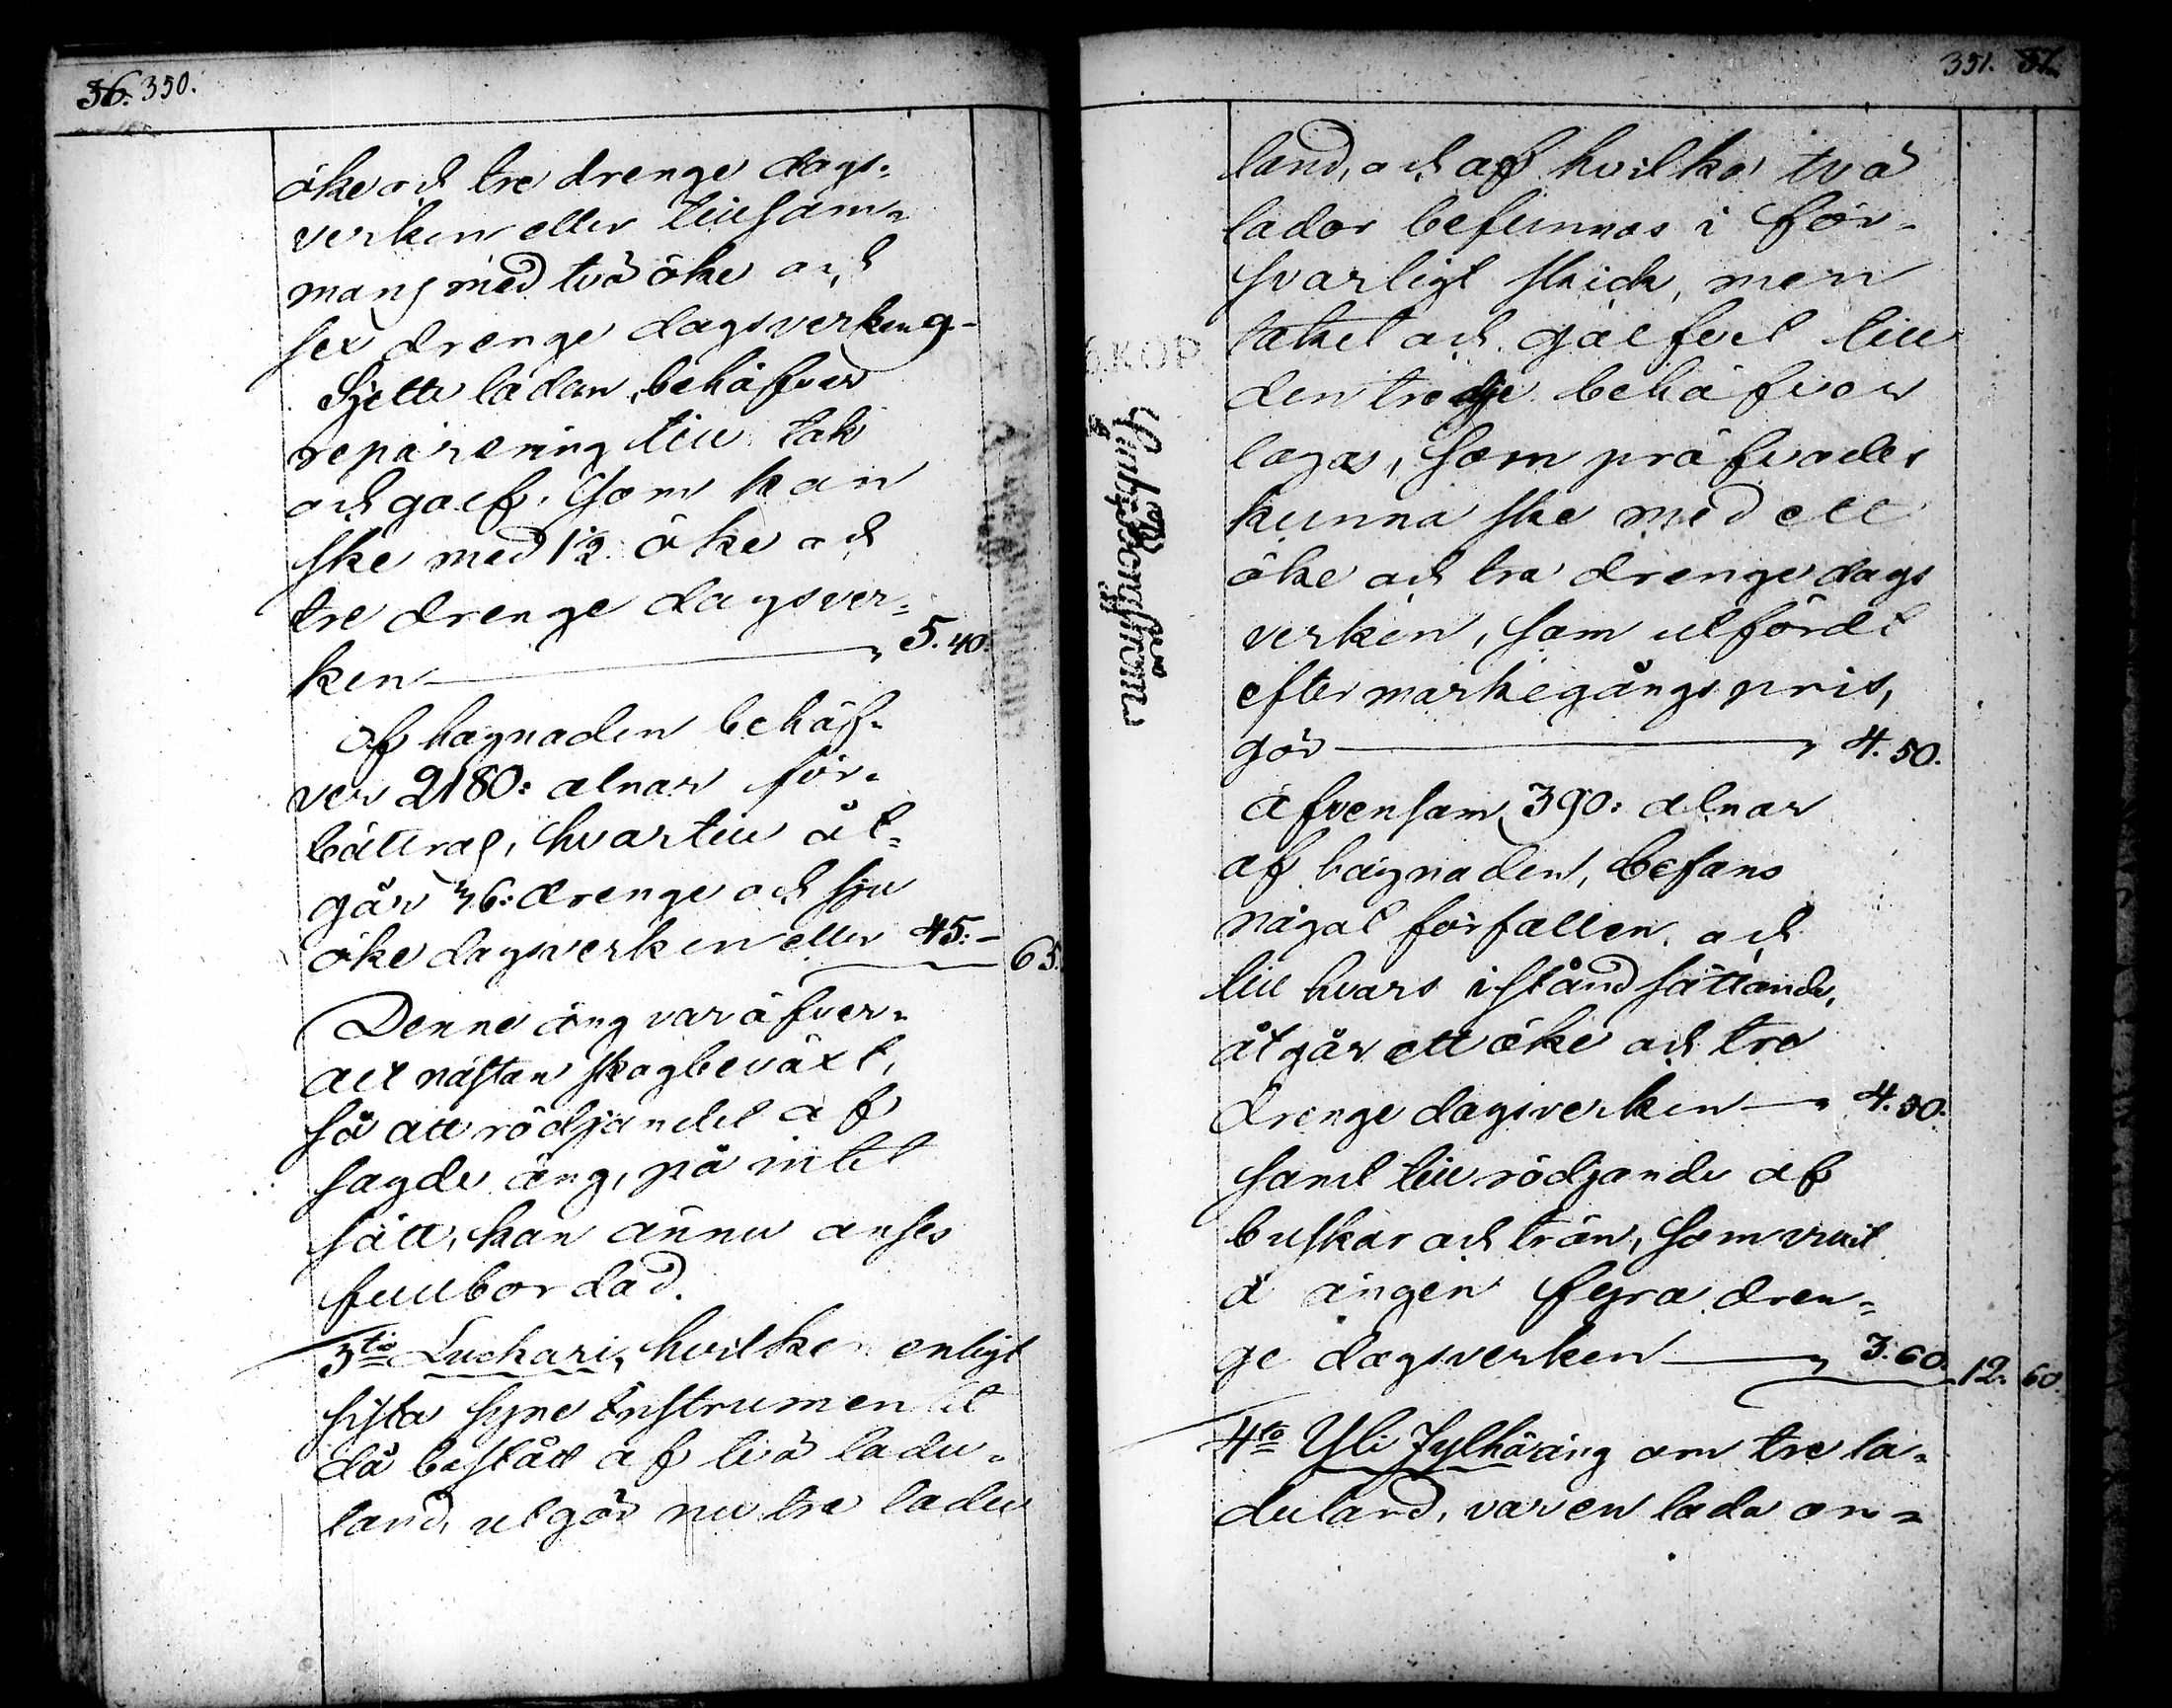 36. 350.
öke och tre drenge dags-
verken eller tillsam-
mans med två öke och
sex drenge dagsverken 9-
Sjette ladan behöfver
reparering till tak
och golf, som kan
ske med 1½ öke och
tre drenge dagsver-
ken 5.40.
Af hagnaden behöf-
ver 2180: alnar för-
bättras, hvartill åt-
går 36: drenge och sju
öke dagsverken eller 45:- 65.
Denne äng var öfver-
alt nästan skogbeväxt,
så att rödjandet af
sagde äng, på intet
sätt, kan ännu anses
fullbordad.
3tio Luchari, hvilken enligt
sista syne Instrumentet
då bestått af två ladu-
land, utgör nu tre ladu
351. 37.
land, och af hvilka två
lador befunnos i för-
svarligt skick, men
taket och golfvet till
den tredje behöfver
lagas, som pröfvades
kunna ske med ett
öke och tre drenge dags
verken, som utfördt
efter markegångspris,
gör 4.50.
äfvensom 390: alnar
af hagnaden, befans
något förfallen och
till hvars iståndsättande,
åtgår ett öke och tre
drenge dagsverken 4.50.
samt till rödjande af
buskar och trän, som vuxit
å ängen fyra dren-
ge dagsverken 3.60. 12. 60.
4to Yli Jylhäräng om tre la-
duland, var en lada om-